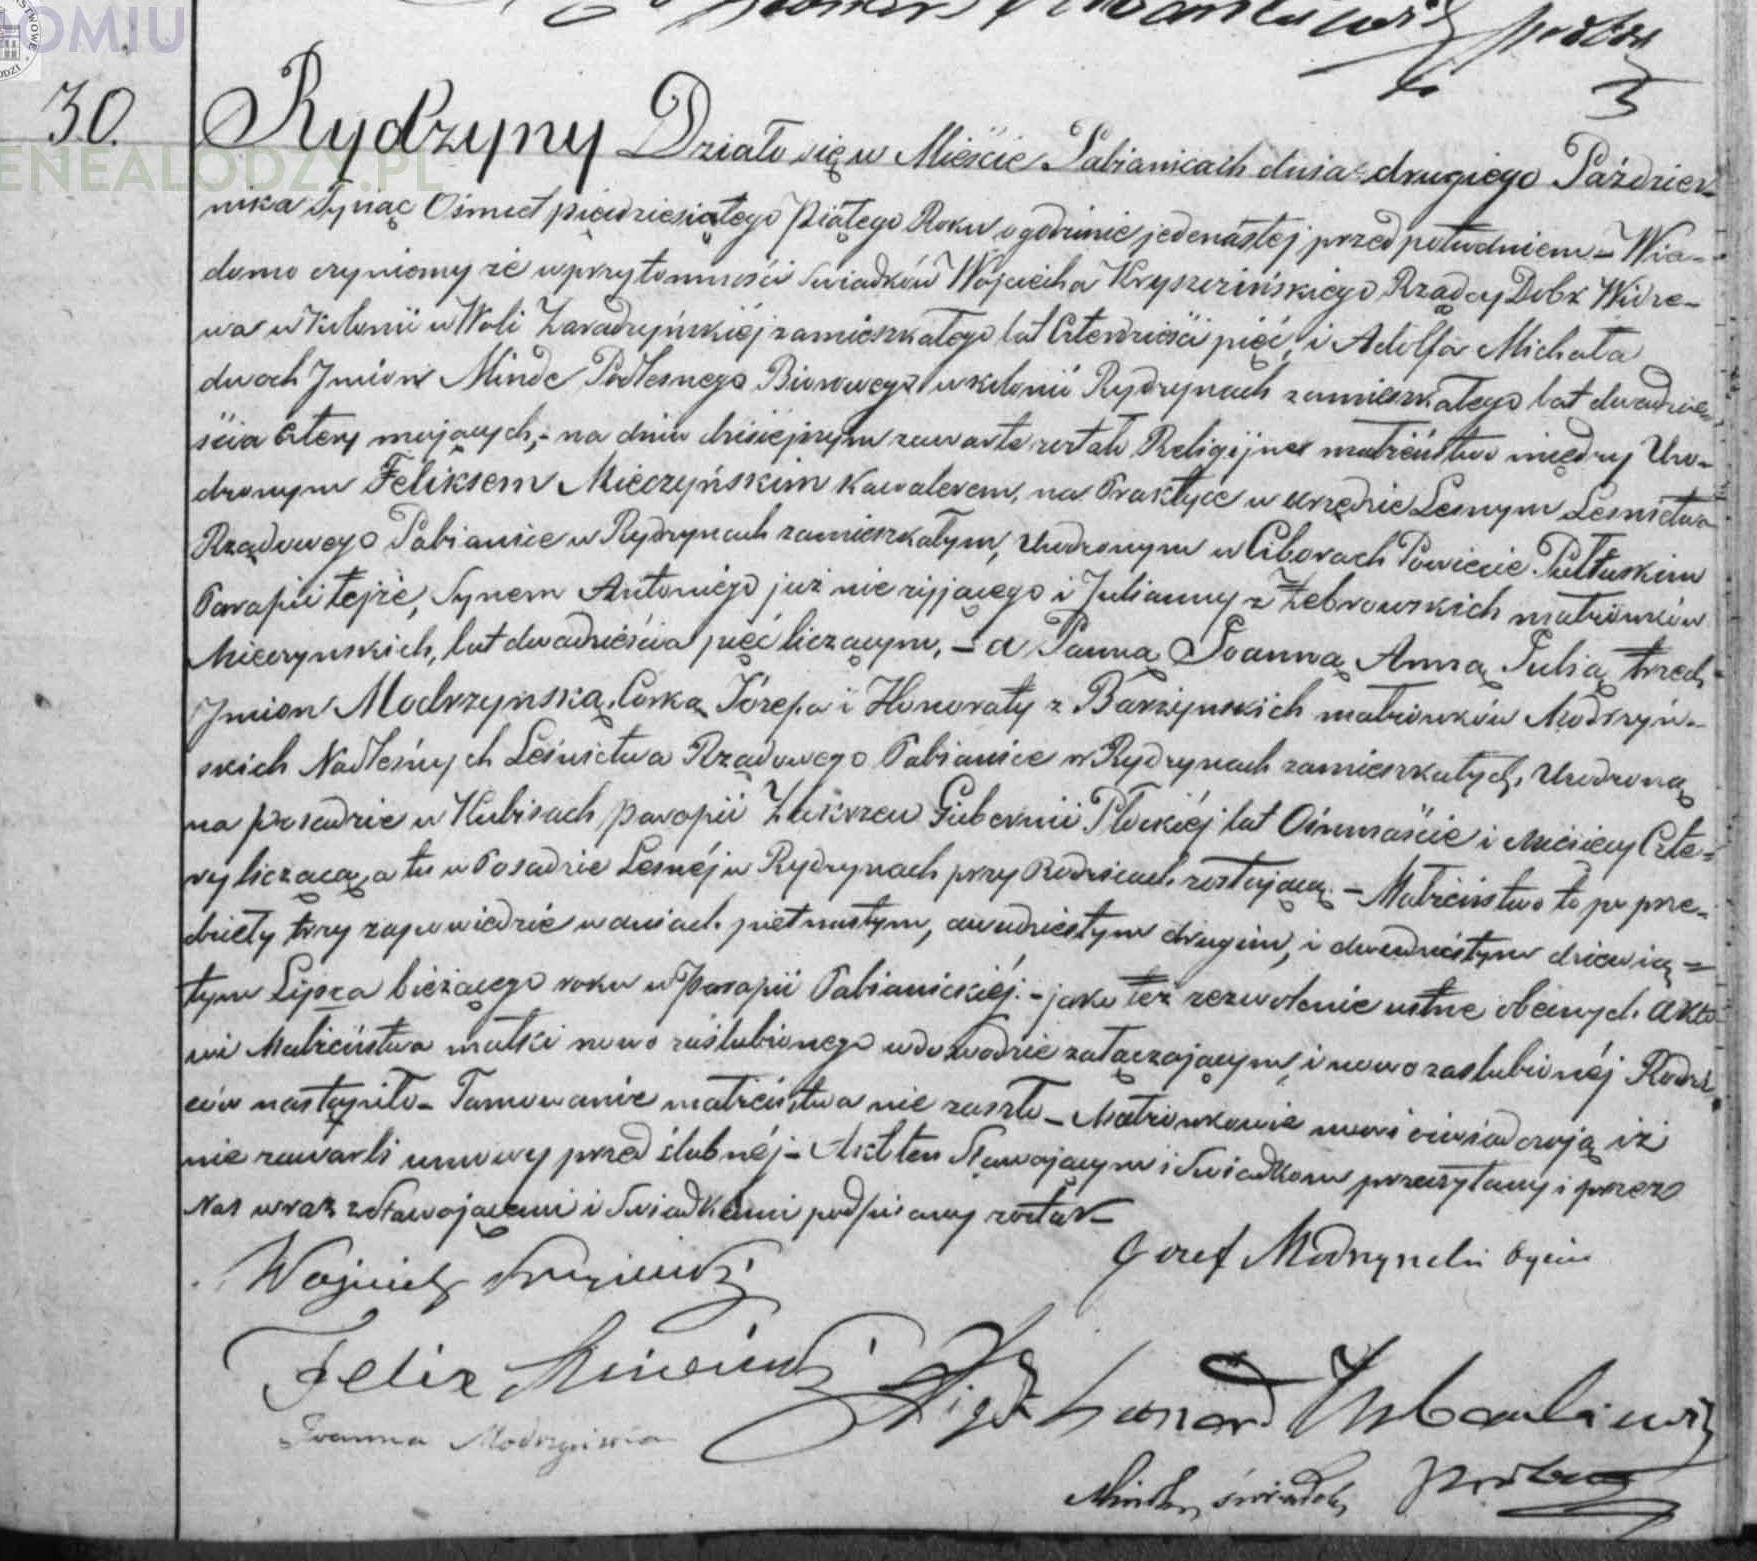 30.
Rydzyny Działo się w Mieście Pabianicach dnia drugiego Paździer-
nika Tysiąc Ośmset pięćdziesiątego piątego Roku o godzinie jedenastej przed południem – Wia-
domo czyniemy że w przytomności Świadków Wojciecha Kryszczińskiego Rządcy Dobr Widze-
wa w Kolonii w Woli Zaradzyńskiéj zamieszkałego lat Czterdzieści pięć, i Adolfa Michała
dwóch Imion Minde Podleśnego Biurowego w kolonii Rydzynach zamieszkałego lat dwadzie-
ścia cztery mających, – na dniu dzisiejszym zawarte zostało Religijne małżeństwo między Uro-
dzonym Feliksem Mieczyńskim Kawalerem, na Praktyce w urzędzie Leśnym Leśnictwa
Rządowego Pabianice w Rydzynach zamieszkałym, Urodzonym w Ciborach Powiecie Pułtuskim
Parafii tejże, Synem Antoniego już nie żyjącego i Julianny z Żebrowskich małżonków
Mieczyńskich, lat dwadzieścia pięć liczącym, – a Panną Joanną Anną Julią trzech
Imion Modrzyńską, Córką Józefa i Honoraty z Barzyńskich małżonków Modrzyń-
skich Nadleśnych Leśnictwa Rządowego Pabianice w Rydzynach zamieszkałych, Urodzoną
na posadzie w Kubisach parafii Zakrzew Gubernii Płockiéj lat Ośmnaście i Miesięcy Czte-
ry liczącą, a tu w Posadzie Leśnéj w Rydzynach przy Rodzicach zostającą. – Małżeństwo to po prze-
dziły trzy zapowiedzie w dniach piętnastym, dwudziestym drugim, i dwudziestym dziewią-
tym Lipca bieżącego roku w Parafii Pabianickiéj. – jako też zezwolenie ustne obecnych Akto
wi Małżeństwa matki nowo zaślubionego w dowodzie załączającym, i nowo zaślubionéj Rodzi-
ców nastąpiło – Tamowanie małżeństwa nie zaszło – Małżonkowie nowi oświadczają iż
nie zawarli umowy przed ślubnéj – Akt ten Stawającym i Świadkom przeczytany i przez
Nas wraz z Stawającemi i Świadkami podpisany został –
Jozef Modrzynski Oyciec
Felix
Joanna Modrzyńska
Leonard
świadek